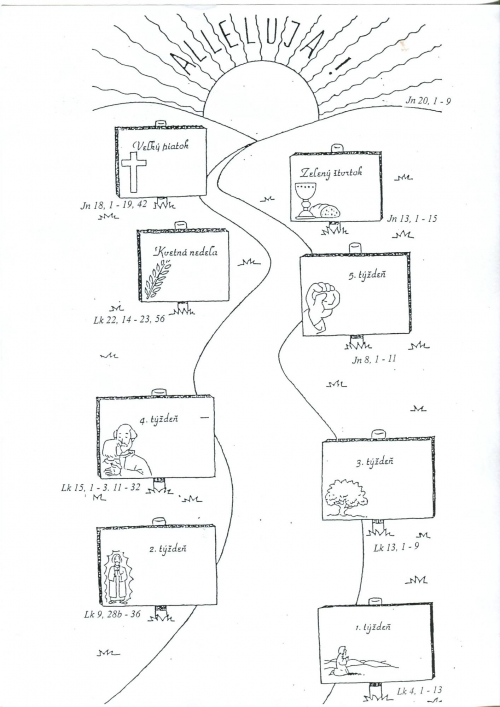 ALLELUJA!
Jn 20, 1 - 9
Veľký piatok
Jn 18, 1 - 19, 42
Zelený štvrtok
Jn 13, 1 - 15
Kvetná nedeľa
Lk 22, 14 - 23, 56
5. týždeň
Jn 8, 1 - 11
4. týždeň
Lk 15, 1 - 3. 11 - 32
3. týždeň
Lk 13, 1 - 9
2. týždeň
Lk 9, 28b - 36
1. týždeň
Lk 4, 1 - 13